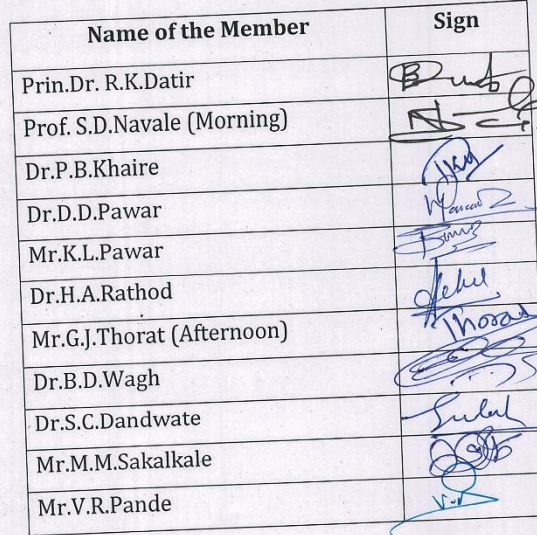 Name of the Member Sign
Prin.Dr. R.K.Datir
Prof. S.D.Navale (Morning)
Dr.P.B.Khaire
Dr.D.D.Pawar
Mr.K.L.Pawar
Dr.H.A.Rathod
Mr.G.J.Thorat (Afternoon) Thorat
Dr.B.D.Wagh
Dr.S.C.Dandwate
Mr.M.M.Sakalkale
Mr.V.R.Pande